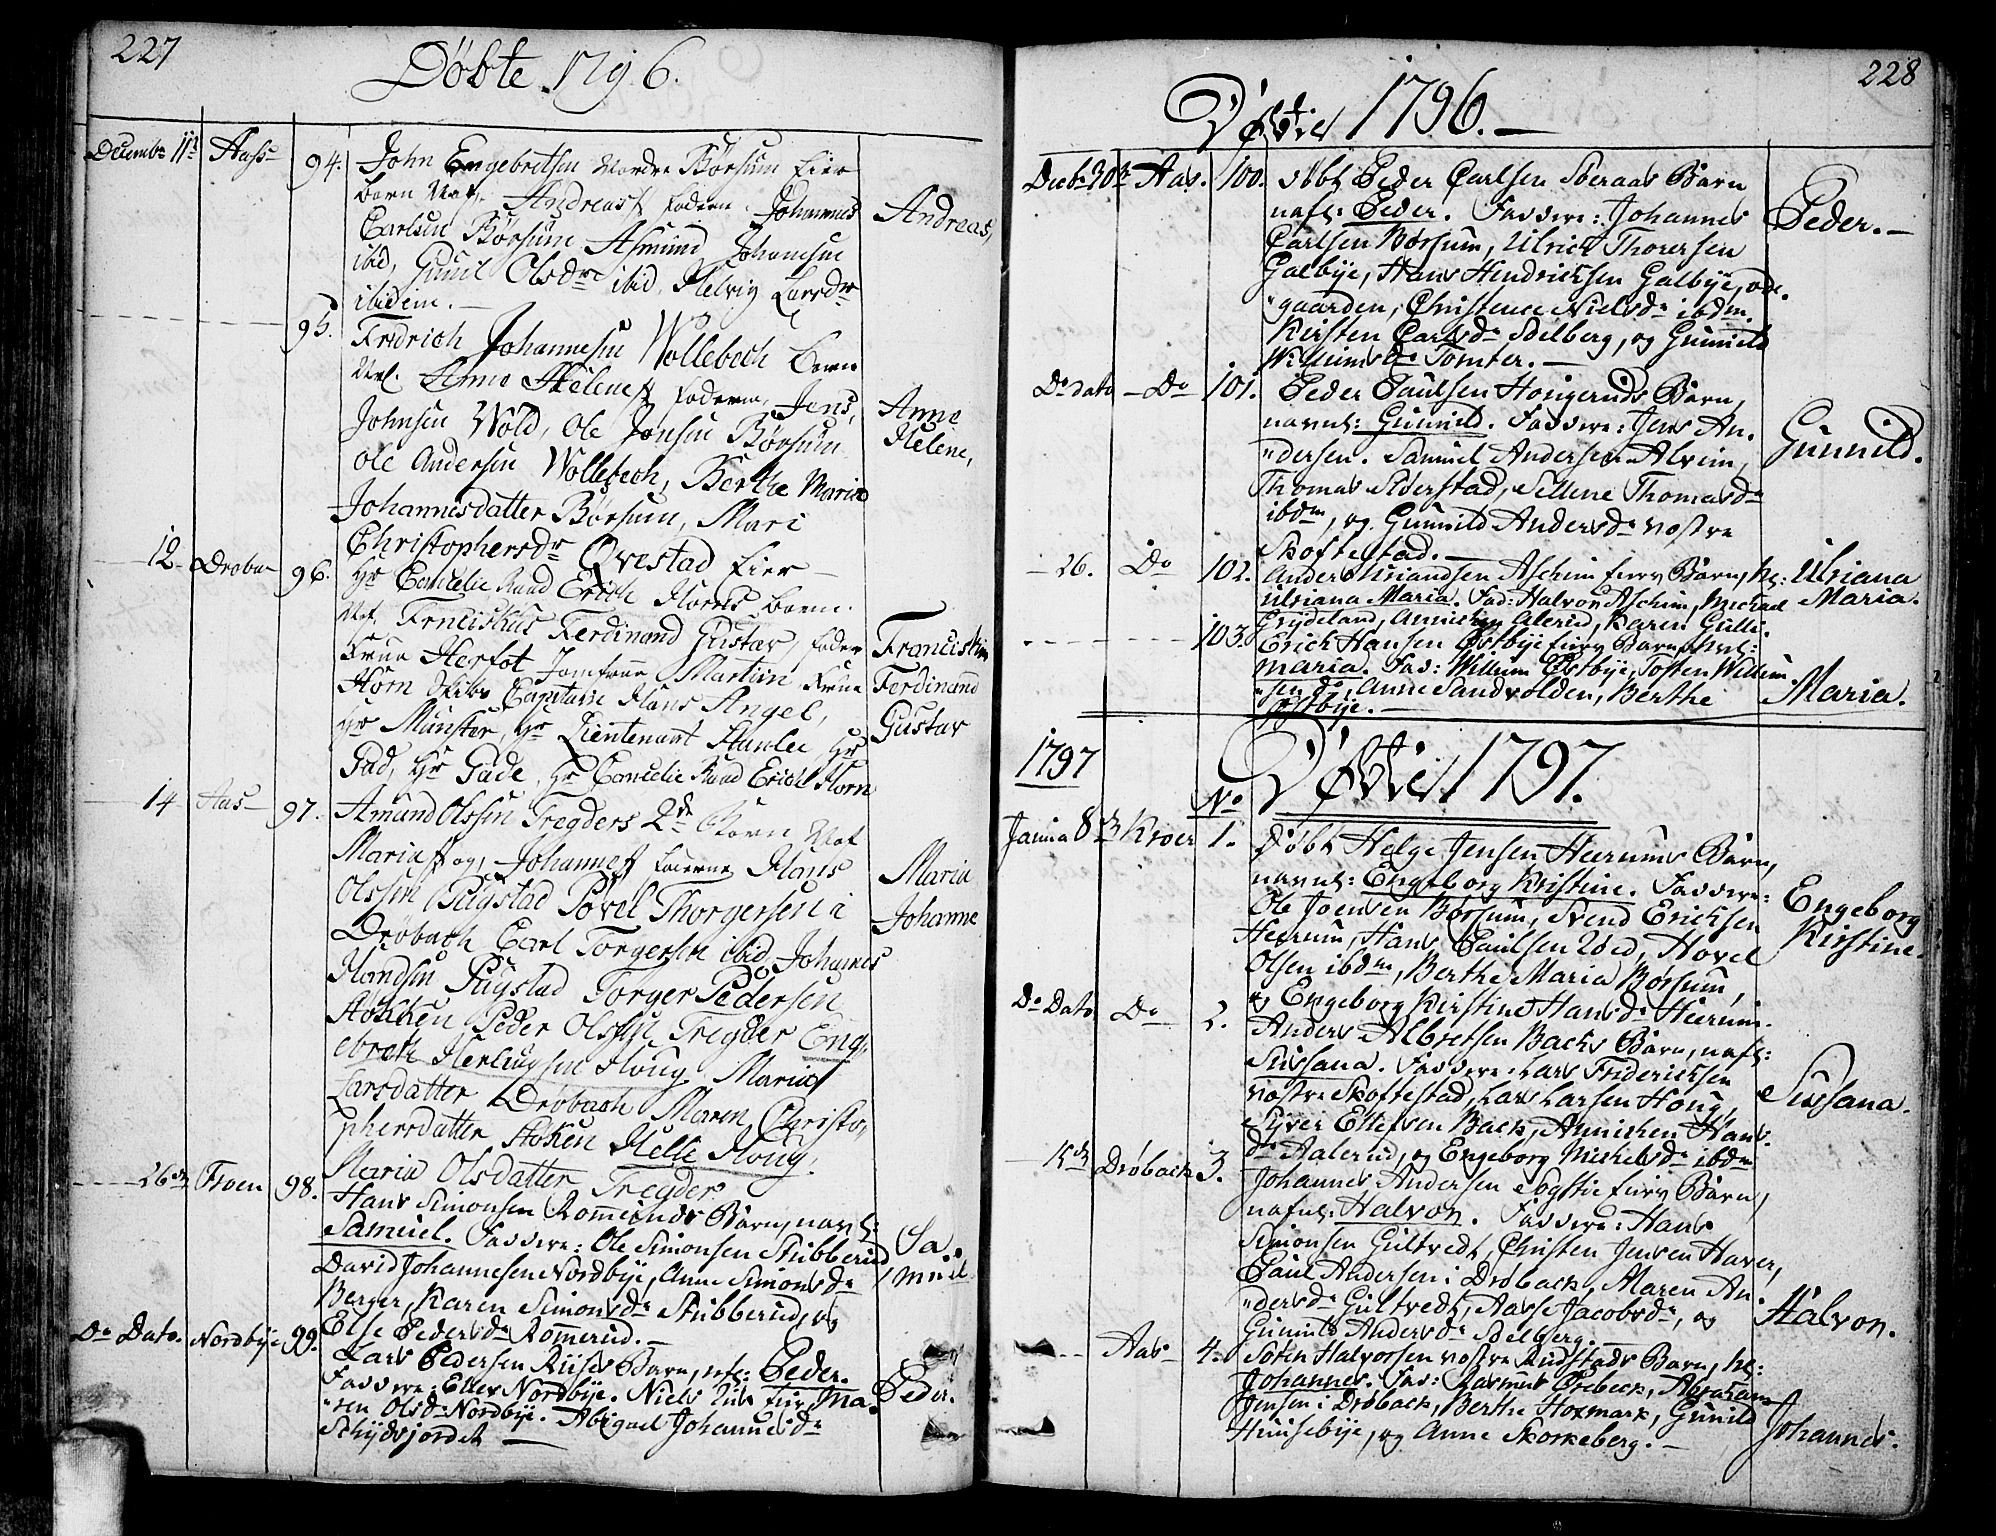 227
Döbte 1796.
Decembr 11te Aass 94. John Engebretsen Nordre Börsum Eier
Barn Naf. Andreas f Fadere Johannes
Carlsen Börsum Asmund Johansen
ibid, Gunil Olsdr ibid, Helvig Larsdr
ibidem.
Andreas,
95. Fredrich Johannesen Wollebech Barn
Naf. Anne Helene f Fadere, Jens
Johnsen Wold, Ole Jonsen Börsum
Ole Andersen Wollebech, Berthe Maria
Johannesdatter Börsum, Mari
Christophersdr Ovestad Eier
Anne
Helene,
12 Dröba 96. Hr Cancelie Raad Erich Horns Barn
Naf. Frnciskus Ferdinand Gustav, Fader
Frue Herfot Jomfrue Martiin Frue
Horn Skibs Capitain Hans Angel,
Hr Münster, Hr Lieutenant Stanlee Hr
Gad, Hr Gade, Hr Cancelie Raad Erich Horn
Franciskus
Ferdinand
Gustav
14 Aas 97. Amund Olssen Tregders 2de Börn Naf
Maria f og Johanne f Faderne Hans
Olssen Pugstad Povel Thorgersen i
Dröbach Carl Torgersen ibid Johanes
Handsen Pugstad Torger Pedersen
Stokken Peder Olssen Tregder Eng
ebreth Herlugsen Houg Maria
Larsdatter Dröbach Maren Christo
phersdatter Stoken Helle Houg.
Maria Olsdatter Tregder
Maria
Johanne
26de Froen 98. Hans Simonsen Romeruds Barn, navnl:
Samuel. Faddere: Ole Simonsen Stubberud
David Johannesen Nordbye, Anne Simonsdr
Berger, Karen Simonsdr Stubberud, og
Else Pedersdr Romerud.
Sa-
muel
Do Dato. Nordbye 99. Lars Pedersen Riises Barn, nfl: Peder.
Faddere: Eller Nordbye. Niels Riis fung Ma-
ren Olsdr Nordbye. Abigael Johannesdr
Schydsjordet
Peder.
228
Döbte 1796.
Decbr 30te Aas. 100. Döbt Peder Carlsen Soeraas Barn
nafl: Peder. Faddere: Johannes
Carlsen Börsum, Ulrich Thorersen
Galbye, Hans Hendricksen Galbye, øde
gaarden, Christence Nielsdr ibdm.
Kirsten Carlsdr Solberg, og Gunnild
Willumsdr Tomter.
Peder.
Do dato Do 101. Peder Paulsen Hougeruds Barn,
navnl: Gunnild. Faddere: Jens An-
dersen. Samuel Andersen Alvim,
Thomas Siderstad, Sellene Thomasdr
ibdm, og Gunnild Andersdr vostre
Skoftestad.
Gunnild.
26. Do 102. Anders Uriandsen Aschim fung Barn, nl:
Ulriana Maria. Fad: Halvor Aschim, Michael
Grydeland, Annichen Alerud, Karen Gulli.
Ulriana
Maria.
103. Erich Hansen Östbye fung Barn navnl:
Maria. Fad: Willum Östbye, Tosten Willum
sen do, Anne Sandvolden, Berthe
Östbye.
Maria.
1797 Döbte 1797.
No
Janua 8de Kroer 1. Döbt Helge Jensen Heerums Barn,
navnl: Engeborg Kristine. Faddere:
Ole Joensen Börsum, Svend Ericksen
Heerum, Hans Paulsen Wed, Hovel
Olsen ibdm, Berthe Maria Börsum,
og Engeborg Kirstine Hansdr Heerum.
Engeborg
Kirstine.
Do Dato Do 2. Anders Albretsen Backs Barn, nafl:
Sussana. Faddere: Lars Fridericksen
vostre Skoftestad, Lars Larsen Houg,
Syver Ellefsen Back, Annichen Hans-
dr Aalerud, og Engeborg Michelsdr ibdm
Sussana.
15de Dröback 3. Johannes Andersen Sogstie fung Barn,
nafnl: Halvor. Faddere: Hans
Simonsen Gultvedt, Christen Jensen Haver,
Paul Andersen i Dröback, Maren An-
dersdr Gultvedt, Aasse Jacobsdr, og
Gunnild Andersdr Solberg.
Halvor.
Aas 4. Sören Halvorsen vostre Rudstads Barn, nl:
Johannes. Fad: Rasmus Örebeck, Abraham
Jensen i Dröback, Berthe Hoxmark, Gunild
Huusebye, og Anne Skorkeberg.
Johannes.